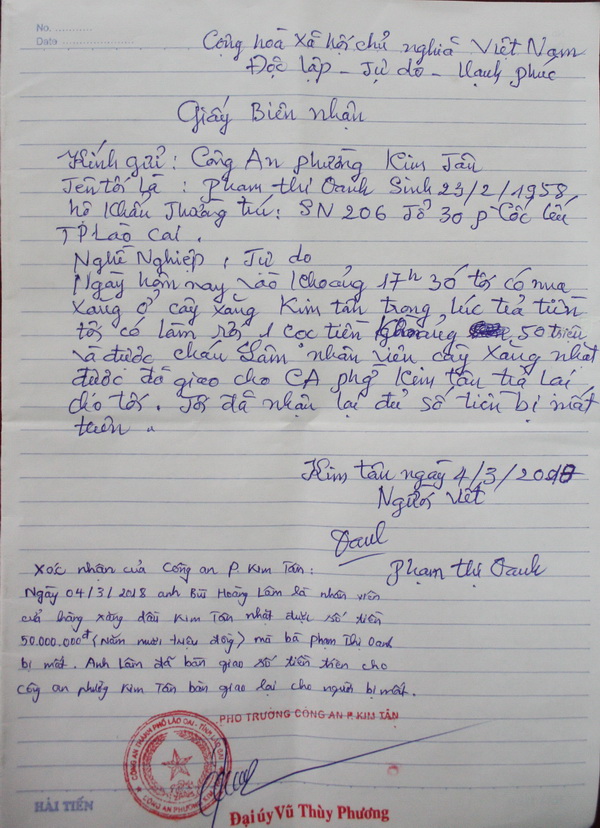 No. ............
Date ........................
Cộng hoà xã hội chủ nghĩa Việt Nam
Độc lập - Tự do - Hạnh phúc
Giấy Biên nhận
Kính gửi : Công An phường Kim Tân
Tên tôi là : Phạm thị Oanh Sinh 23/2/1958
hộ khẩu Thường trú : SN 206 Tổ 30 p Cốc lếu
TP Lào Cai .
Nghề Nghiệp : Tự do
Ngày hôm nay vào khoảng 17h 30 tôi có mua
xăng ở cây xăng Kim tân trong lúc trả tiền
tôi có làm rơi 1 cọc tiền khoảng 50 triệu
và được cháu Lâm nhân viên cây xăng nhặt
được đã giao cho CA phg Kim tân trả lại
cho tôi . Tôi đã nhận lại đủ số tiền bị mất
trên .
Kim tân ngày 4/3/2018
Người viết
Oanh
Phạm thị Oanh
Xác nhận của Công an P. Kim Tân :
Ngày 04/3/2018 anh Bùi Hoàng Lâm là nhân viên
cửa hàng xăng dầu Kim Tân nhặt được số tiền
50.000.000đ (Năm mươi triệu đồng) mà bà Phạm Thị Oanh
bị mất. Anh Lâm đã bàn giao số tiền trên cho
công an phường Kim Tân bàn giao lại cho người bị mất.
PHÓ TRƯỞNG CÔNG AN P. KIM TÂN
CÔNG AN THÀNH PHỐ LÀO CAI - TỈNH LÀO CAI
CÔNG AN PHƯỜNG KIM
HẢI TIẾN
Đại úy Vũ Thùy Phương